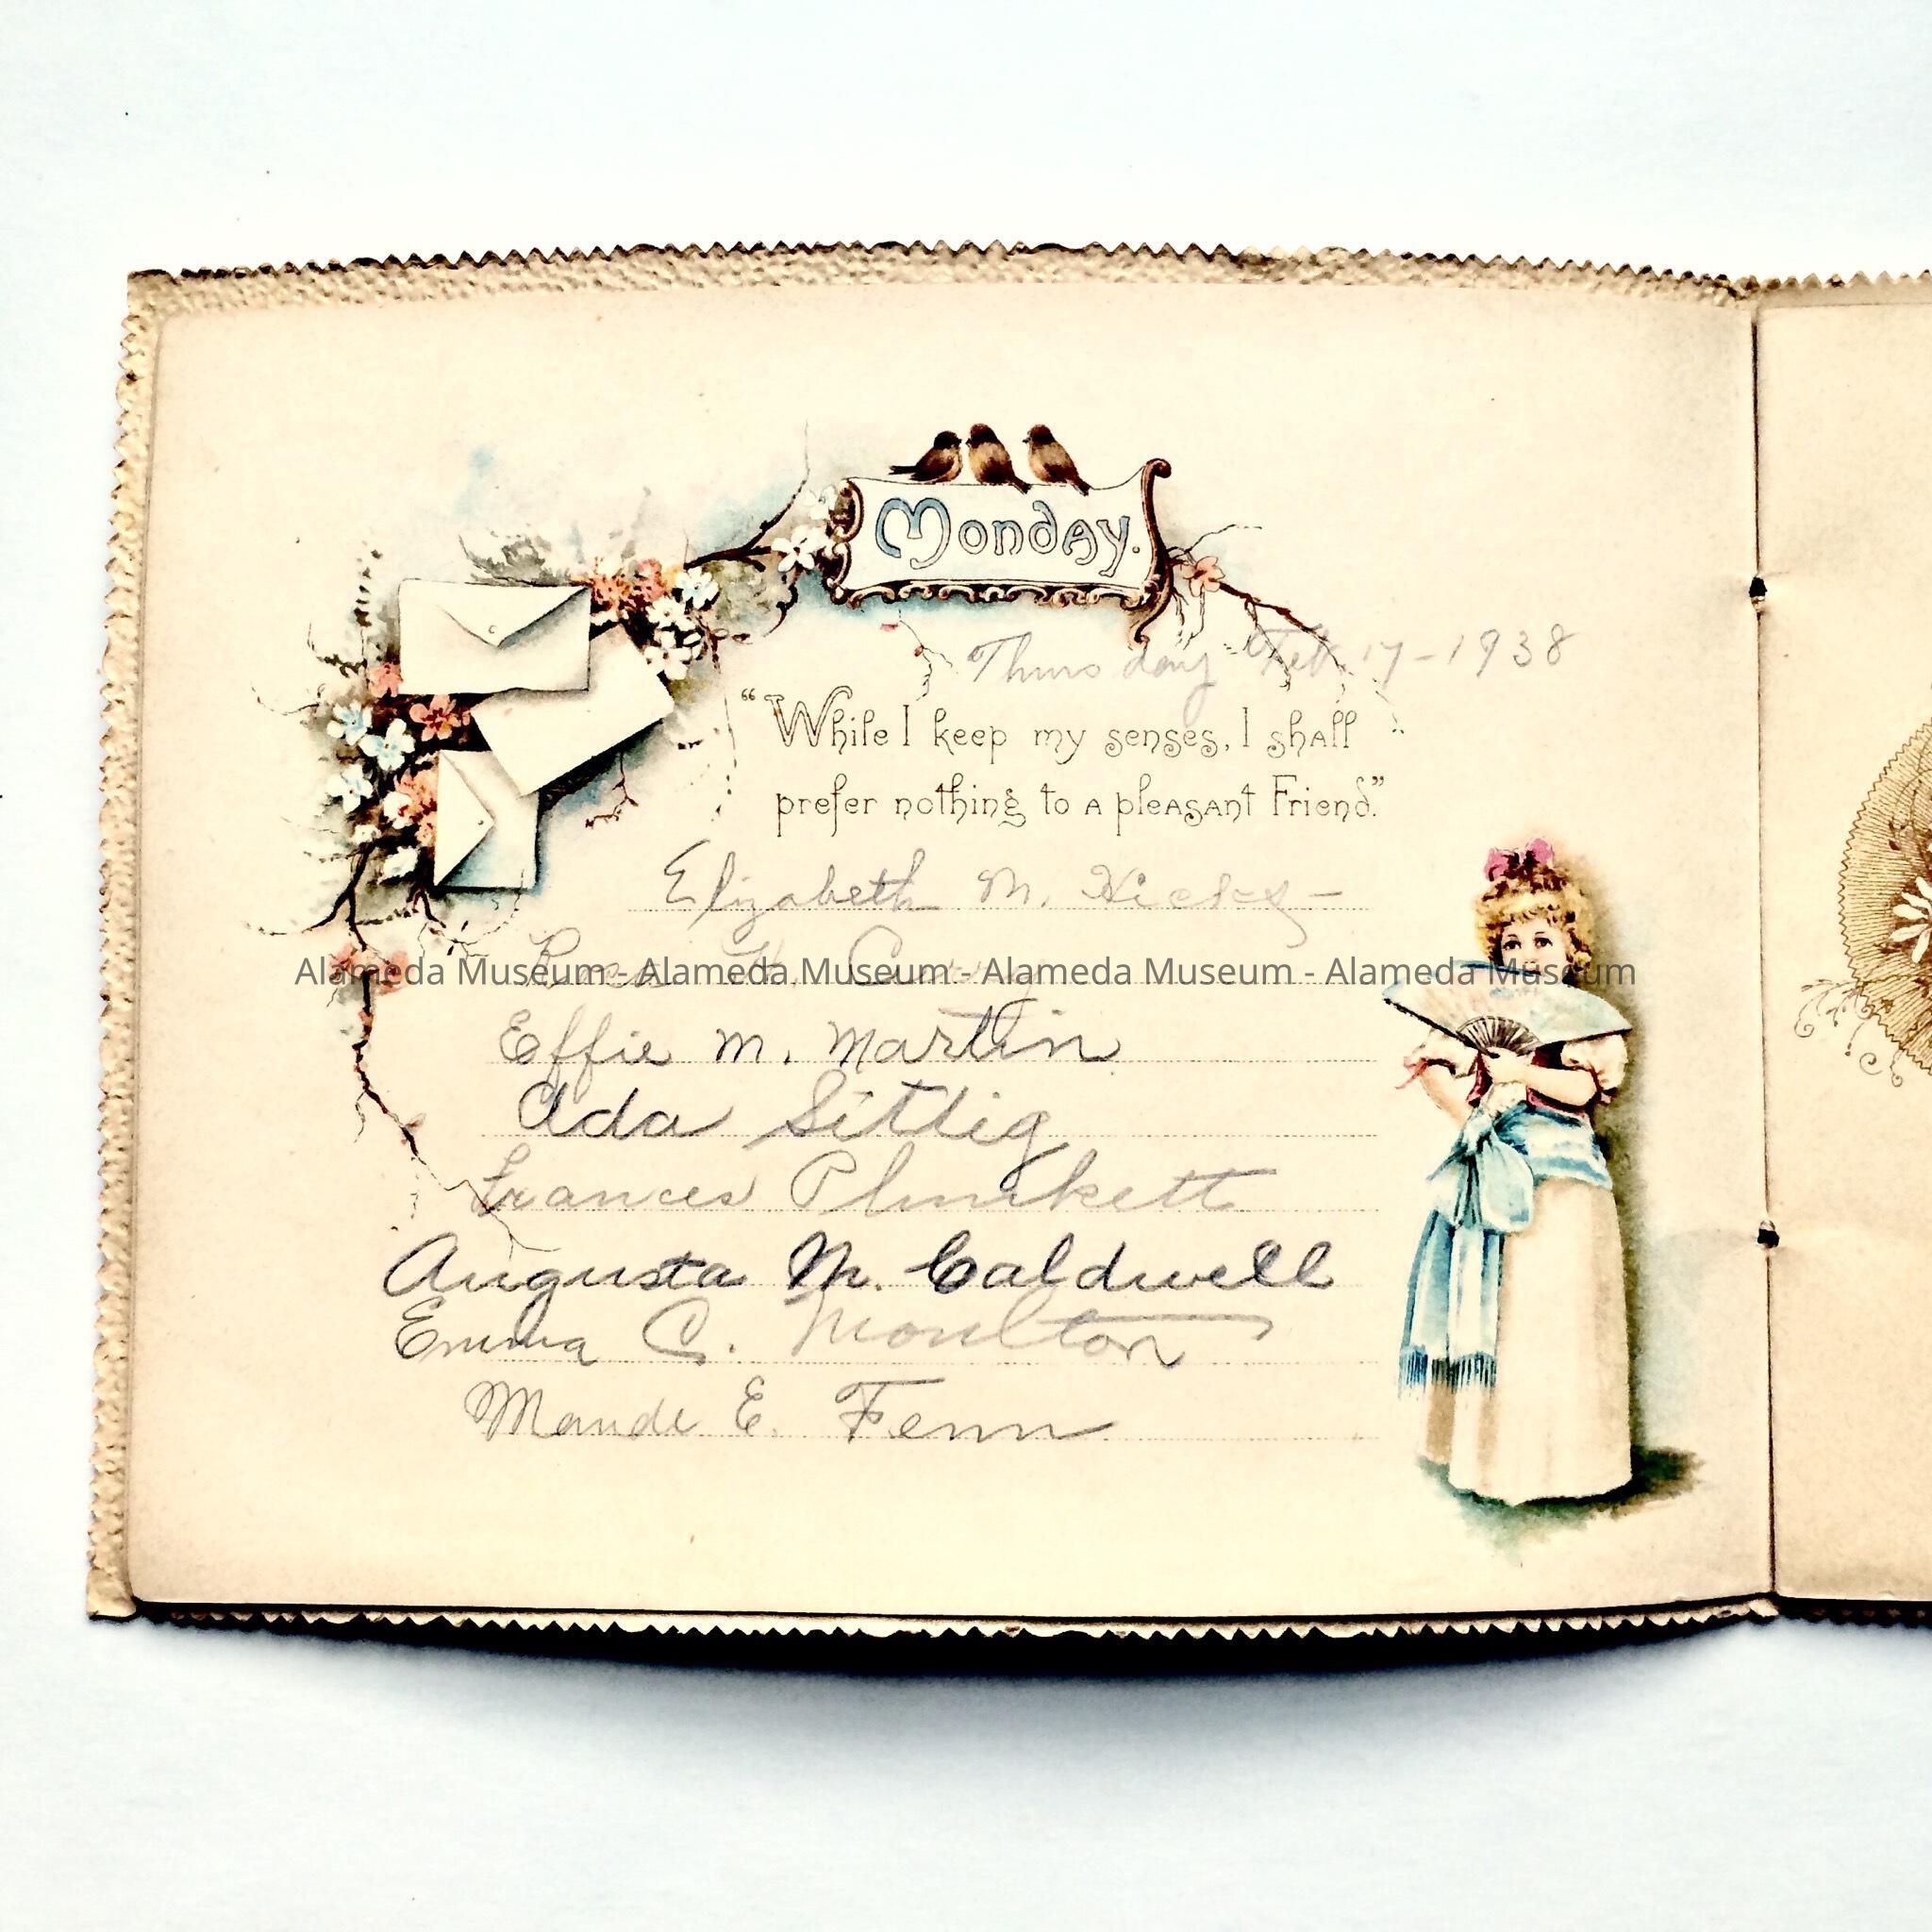 Monday.
Thursday Feb. 17-1938
“While I keep my senses, I shall
prefer nothing to a pleasant Friend.”
Elizabeth M.
Alameda Museum - Alameda Museum - Alameda Museum - Alameda Museum
Effie M. Martin
Ada Sittig
Frances Plunkett
Augusta M. Caldwell
Emma C. Moulton
Maude E. Fenn